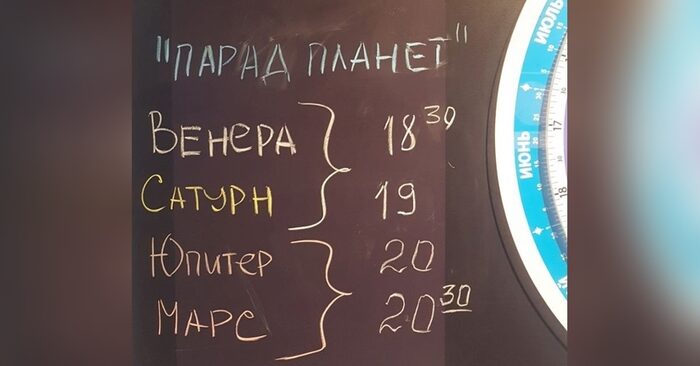 "ПАРАД ПЛАНЕТ"
ВЕНЕРА } 18 30
САТУРН 19
ЮПИТЕР } 20
МАРС 20 30
ИЮЛЬ
ИЮНЬ
17
18